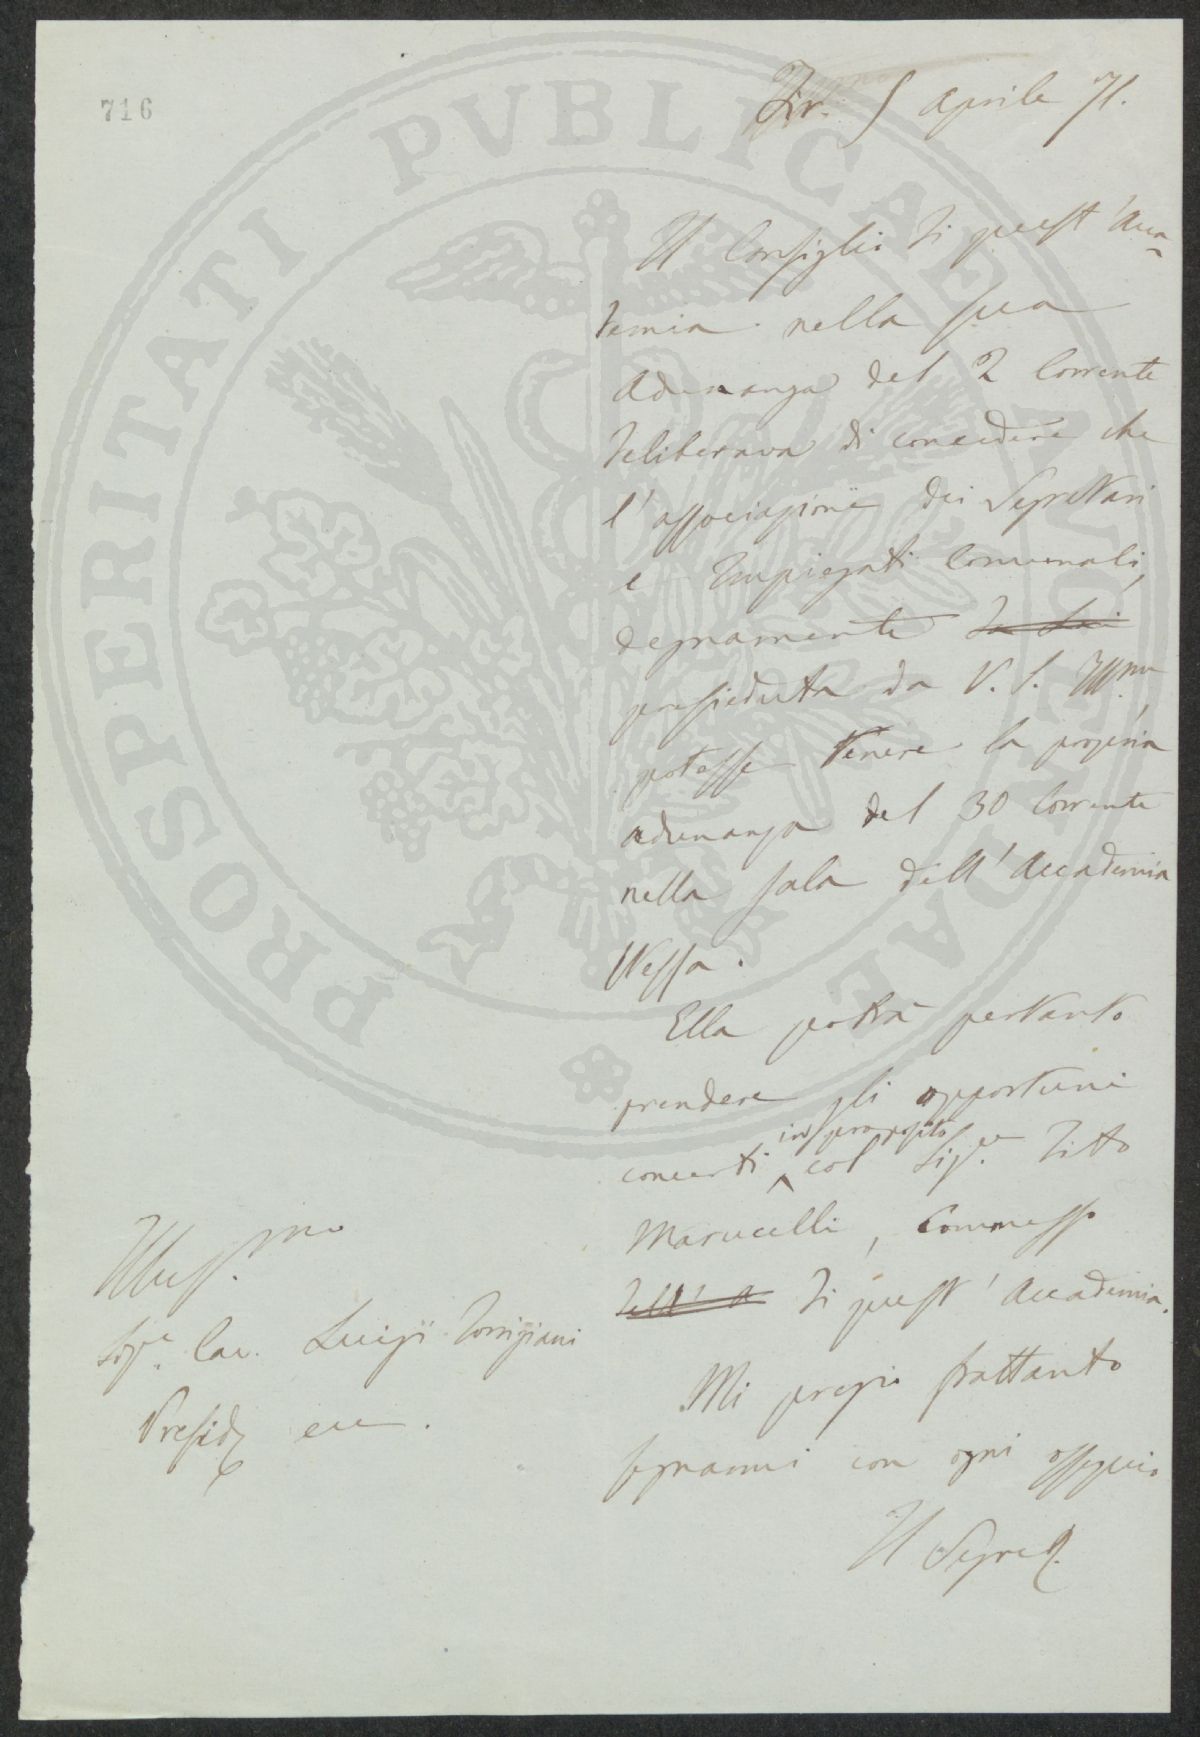 716
Fir. 5 Aprile 71.
Il Consiglio di quest'Acca-
demia nella sua
adunanza del 2 Corrente
deliberava di concedere che
l'associazione dei Segretari
e Impiegati Comunali,
degnamente da Lei
presieduta da V. S. Ill.ma,
potesse tenere la propria
adunanza del 30 Corrente
nella sala dell'Accademia
stessa.
Ella potrà pertanto
prendere gli opportuni
concerti in proposito col Sig.re Tito
Marucelli, Commesso
dell'A di quest'Accademia.
Mi pregio frattanto
segnarmi con ogni ossequio
Il Segret.
Illus.mo
Sig.re Cav. Luigi Torrigiani
Presid. ecc.
PROSPERITATI PVBLICAE AVGENDAE